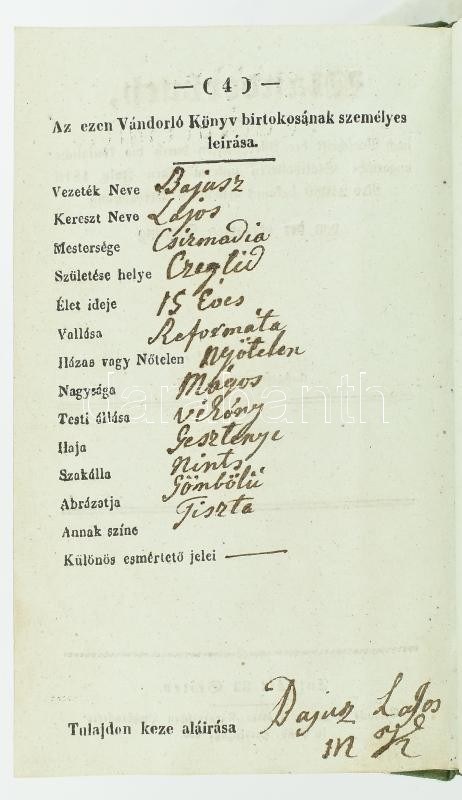 — ( 4 ) —
Az ezen Vándorló Könyv birtokosának személyes
leirása.
Vezeték Neve Bajusz
Kereszt Neve Lajos
Mestersége Csizmadia
Születése helye Czegléd
Élet ideje 15 Éves
Vallása Reformáta
Házas vagy Nőtelen Nyőtelen
Nagysága Mágos
Testi állása vékony
Haja Gesztenye
Szakálla Nints
Abrázatja Gömbölű
Annak színe Tiszta
Különös esmértető jelei ———
Tulajdon keze aláirása Bajusz Lajos
m K